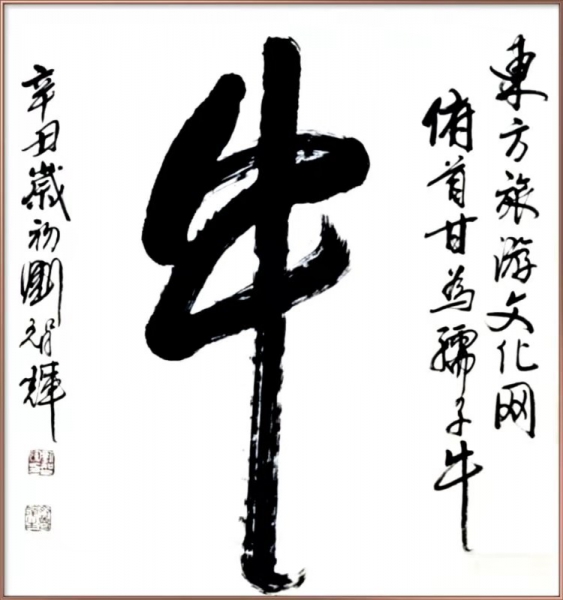 東方旅游文化网
俯首甘為孺子牛
牛
辛丑歲初劉智輝